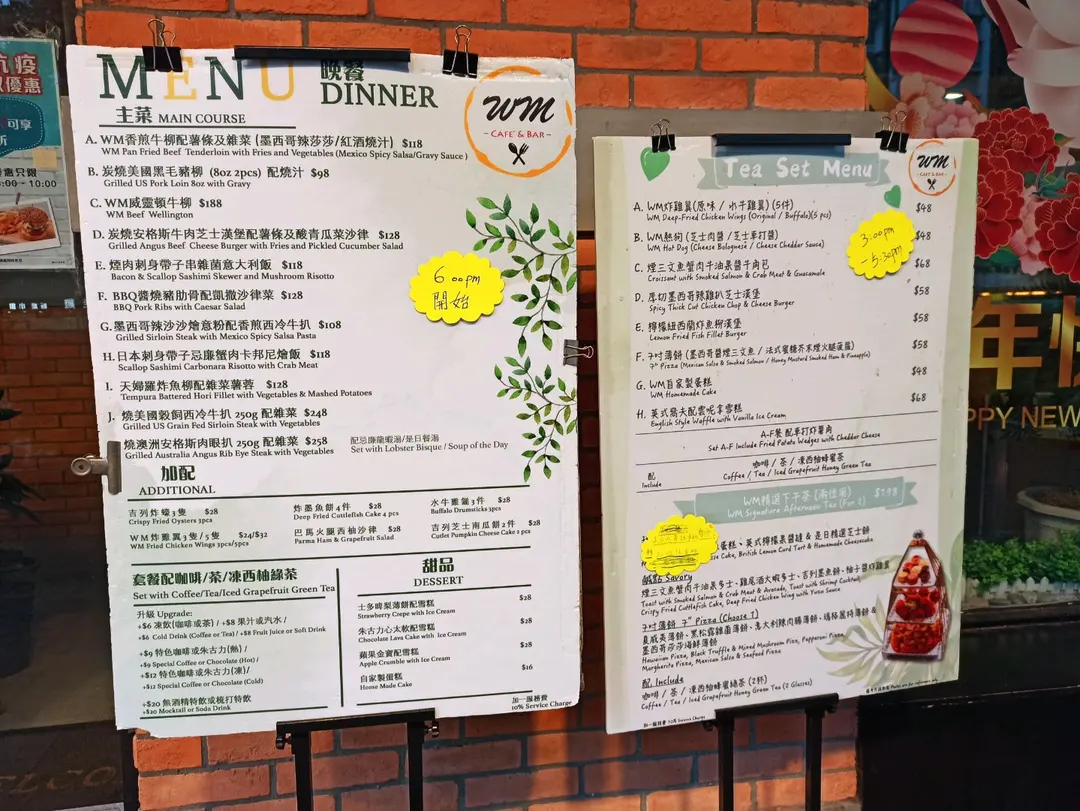 抗疫
優惠
可享
00 - 10:00
MENU 晚餐
DINNER
主菜 MAIN COURSE
WM
- CAFE & BAR -
A. WM香煎牛柳配薯條及雜菜 (墨西哥辣莎莎/紅酒燒汁) $118
WM Pan Fried Beef Tenderloin with Fries and Vegetables (Mexico Spicy Salsa/Gravy Sauce )
B. 炭燒美國黑毛豬柳 (8oz 2pcs) 配燒汁 $98
Grilled US Pork Loin 8oz with Gravy
C. WM威靈頓牛柳 $188
WM Beef Wellington
D. 炭燒安格斯牛肉芝士漢堡配薯條及酸青瓜菜沙律 $128
Grilled Angus Beef Cheese Burger with Fries and Pickled Cucumber Salad
E. 煙肉刺身帶子串雜菌意大利飯 $118
Bacon & Scallop Sashimi Skewer and Mushroom Risotto
F. BBQ醬燒豬肋骨配凱撒沙律菜 $128
BBQ Pork Ribs with Caesar Salad
G. 墨西哥辣沙沙燴意粉配香煎西冷牛扒 $108
Grilled Sirloin Steak with Mexico Spicy Salsa Pasta
H. 日本刺身帶子忌廉蟹肉卡邦尼燴飯 $118
Scallop Sashimi Carbonara Risotto with Crab Meat
I. 天婦羅炸魚柳配雜菜薯蓉 $128
Tempura Battered Hori Fillet with Vegetables & Mashed Potatoes
J. 燒美國穀飼西冷牛扒 250g 配雜菜 $248
Grilled US Grain Fed Sirloin Steak with Vegetables
燒澳洲安格斯肉眼扒 250g 配雜菜 $258
Grilled Australia Angus Rib Eye Steak with Vegetables
配忌廉龍蝦湯/是日餐湯
Set with Lobster Bisque / Soup of the Day
6:00pm
開始
加配
ADDITIONAL
吉列炸蠔3隻 $28
Crispy Fried Oysters 3pcs
炸墨魚餅4件 $28
Deep Fried Cuttlefish Cake 4 pcs
水牛雞鎚3件 $28
Buffalo Drumsticks 3pcs
WM炸雞翼3隻/5隻 $24/$32
WM Fried Chicken Wings 3pcs/5pcs
巴馬火腿西柚沙律 $28
Parma Ham & Grapefruit Salad
吉列芝士南瓜餅2件 $28
Cutlet Pumpkin Cheese Cake 2 pcs
套餐配咖啡/茶/凍西柚綠茶
Set with Coffee/Tea/Iced Grapefruit Green Tea
升級 Upgrade:
+$6 凍飲(咖啡或茶) / +$8 果汁或汽水/
+$6 Cold Drink (Coffee or Tea) / +$8 Fruit Juice or Soft Drink
+$9 特色咖啡或朱古力(熱) /
+$9 Special Coffee or Chocolate (Hot) /
+$12 特色咖啡或朱古力(凍)/
+$12 Special Coffee or Chocolate (Cold)
+$20 無酒精特飲或梳打特飲
+$20 Mocktail or Soda Drink
甜品
DESSERT
士多啤梨薄餅配雪糕 $28
Strawberry Crepe with Ice Cream
朱古力心太軟配雪糕 $28
Chocolate Lava Cake with Ice Cream
蘋果金寶配雪糕 $28
Apple Crumble with Ice Cream
自家製蛋糕 $16
Home Made Cake
加一服務費
10% Service Charge
Tea Set Menu
WM
- CAFE & BAR -
A. WM炸雞翼(原味 / 水牛雞翼) (5件) $48
WM Deep-Fried Chicken Wings (Original / Buffalo)(5 pcs)
B. WM熱狗 (芝士肉醬 / 芝士車打醬) $48
WM Hot Dog (Cheese Bolognese / Cheese Cheddar Sauce)
C. 煙三文魚蟹肉牛油果醬牛角包 $68
Croissant with Smoked Salmon & Crab Meat & Guacamole
D. 厚切墨西哥辣雞扒芝士漢堡 $58
Spicy Thick Cut Chicken Chop & Cheese Burger
E. 檸檬紐西蘭炸魚柳漢堡 $58
Lemon Fried Fish Fillet Burger
F. 7吋薄餅 (墨西哥醬煙三文魚 / 法式蜜糖芥末煙火腿菠蘿) $58
7" Pizza (Mexican Salsa & Smoked Salmon / Honey Mustard Smoked Ham & Pineapple)
G. WM自家製蛋糕 $48
WM Homemade Cake
H. 英式窩夫配雲呢拿雪糕 $68
English Style Waffle with Vanilla Ice Cream
3:00pm
- 5:30pm
A-F餐 配車打炸薯角
Set A-F Include Fried Potato Wedges with Cheddar Cheese
配
Include
咖啡 / 茶 / 凍西柚蜂蜜茶
Coffee / Tea / Iced Grapefruit Honey Green Tea
WM精選下午茶 (兩位用) $198
WM Signature Afternoon Tea (For 2)
蛋糕、英式檸檬果醬撻 & 是日精選芝士餅
Cake, British Lemon Curd Tart & Homemade Cheesecake
鹹點 Savory
煙三文魚蟹肉牛油果多士、雞尾酒大蝦多士、吉列墨魚餅、柚子醬炸雞翼
Toast with Smoked Salmon & Crab Meat & Avocado, Toast with Shrimp Cocktail,
Crispy Fried Cuttlefish Cake, Deep Fried Chicken Wing with Yuzu Sauce
7吋薄餅 7" Pizza (Choose 1)
夏威夷薄餅、黑松露雜菌薄餅、意大利辣肉腸薄餅、瑪格麗特薄餅 &
墨西哥莎莎海鮮薄餅
Hawaiian Pizza, Black Truffle & Mixed Mushroom Pizza, Pepperoni Pizza,
Margherita Pizza, Mexican Salsa & Seafood Pizza
配 Include
咖啡 / 茶 / 凍西柚蜂蜜綠茶 (2杯)
Coffee / Tea / Iced Grapefruit Honey Green Tea (2 Glasses)
加一服務費 10% Service Charge
年
PPY NEW